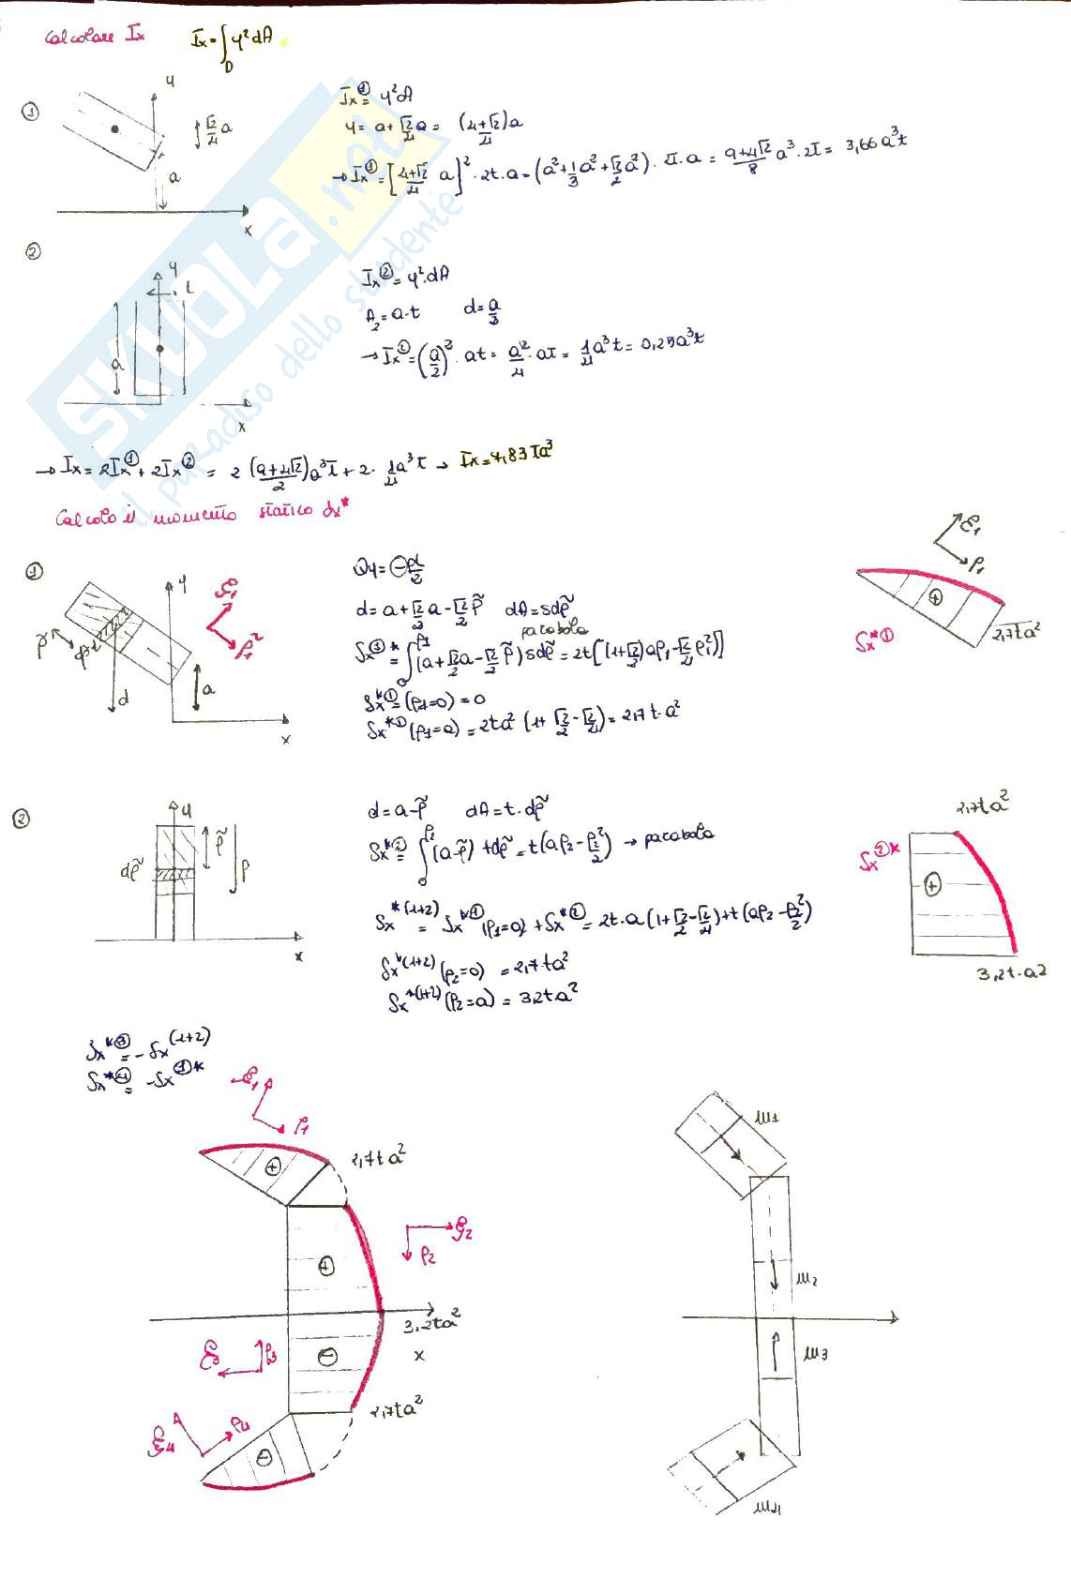 Calcolare Ix    Ix = ∫_D y² dA
①
y
√2/4 a
a
x
Ix^① = y² A
y = a + √2/4 a = (4+√2)/4 a
→ Ix^① = [(4+√2)/4 a]² · 2t·a = (a² + 1/8 a² + √2/2 a²) · 2t·a = (9+4√2)/8 a³ · 2t = 3,66 a³t
②
y
t
a
x
Ix^② = y²·dA
A₂ = a·t    d = a/3
→ Ix^② = (a/2)² · at = a²/4 · at = 1/4 a³t = 0,25a³t
→ Ix = 2Ix^① + 2Ix^② = 2 (9+4√2)/2 a³t + 2 · 1/4 a³t → Ix = 4,83 ta³
Calcolo il momento statico Sx*
①
y
ξ₁
ρ₁
ρ̃
dρ̃
d
a
x
Qy = ⊖ pl/2
d = a + √2/2 a - √2/2 ρ̃    dA = sdρ̃
parabola
Sx^①* = ∫₀^ρ₁ (a + √2/2 a - √2/2 ρ̃) sdρ̃ = 2t[(1+√2/2)aρ₁ - √2/4 ρ₁²]
Sx*^① (ρ₁=0) = 0
Sx*^① (ρ₁=a) = 2ta² (1 + √2/2 - √2/4) = 2,7 t·a²
ξ₁
ρ₁
⊕
Sx*^①
2,7ta²
②
y
dρ̃
ρ̃
ρ
x
d = a - ρ̃    dA = t·dρ̃
Sx*^② = ∫₀^ρ₂ (a-ρ̃) tdρ̃ = t(aρ₂ - ρ₂²/2) → parabola
Sx*^(1+2) = Sx*^① (ρ₁=a) + Sx*^② = 2t·a (1 + √2/2 - √2/4) + t(aρ₂ - ρ₂²/2)
Sx*^(1+2) (ρ₂=0) = 2,7ta²
Sx*^(1+2) (ρ₂=a) = 3,2ta²
2,7ta²
Sx^②*
⊕
3,2t·a2
Sx*^③ = -Sx^(1+2)
Sx*^④ = -Sx^①*
ξ₁
ρ₁
⊕
2,7ta²
ξ₂
ρ₂
⊕
3,2ta²
x
ξ₃
ρ₃
⊖
2,7ta²
ξ₄
ρ₄
⊖
m₁
m₂
m₃
m₄
SKUOLA.net
il paradiso dello studente